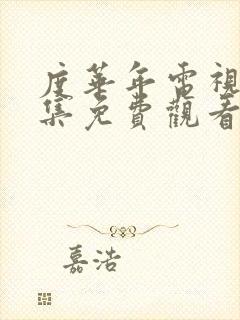 度華年電視
集免費觀看
嘉浩